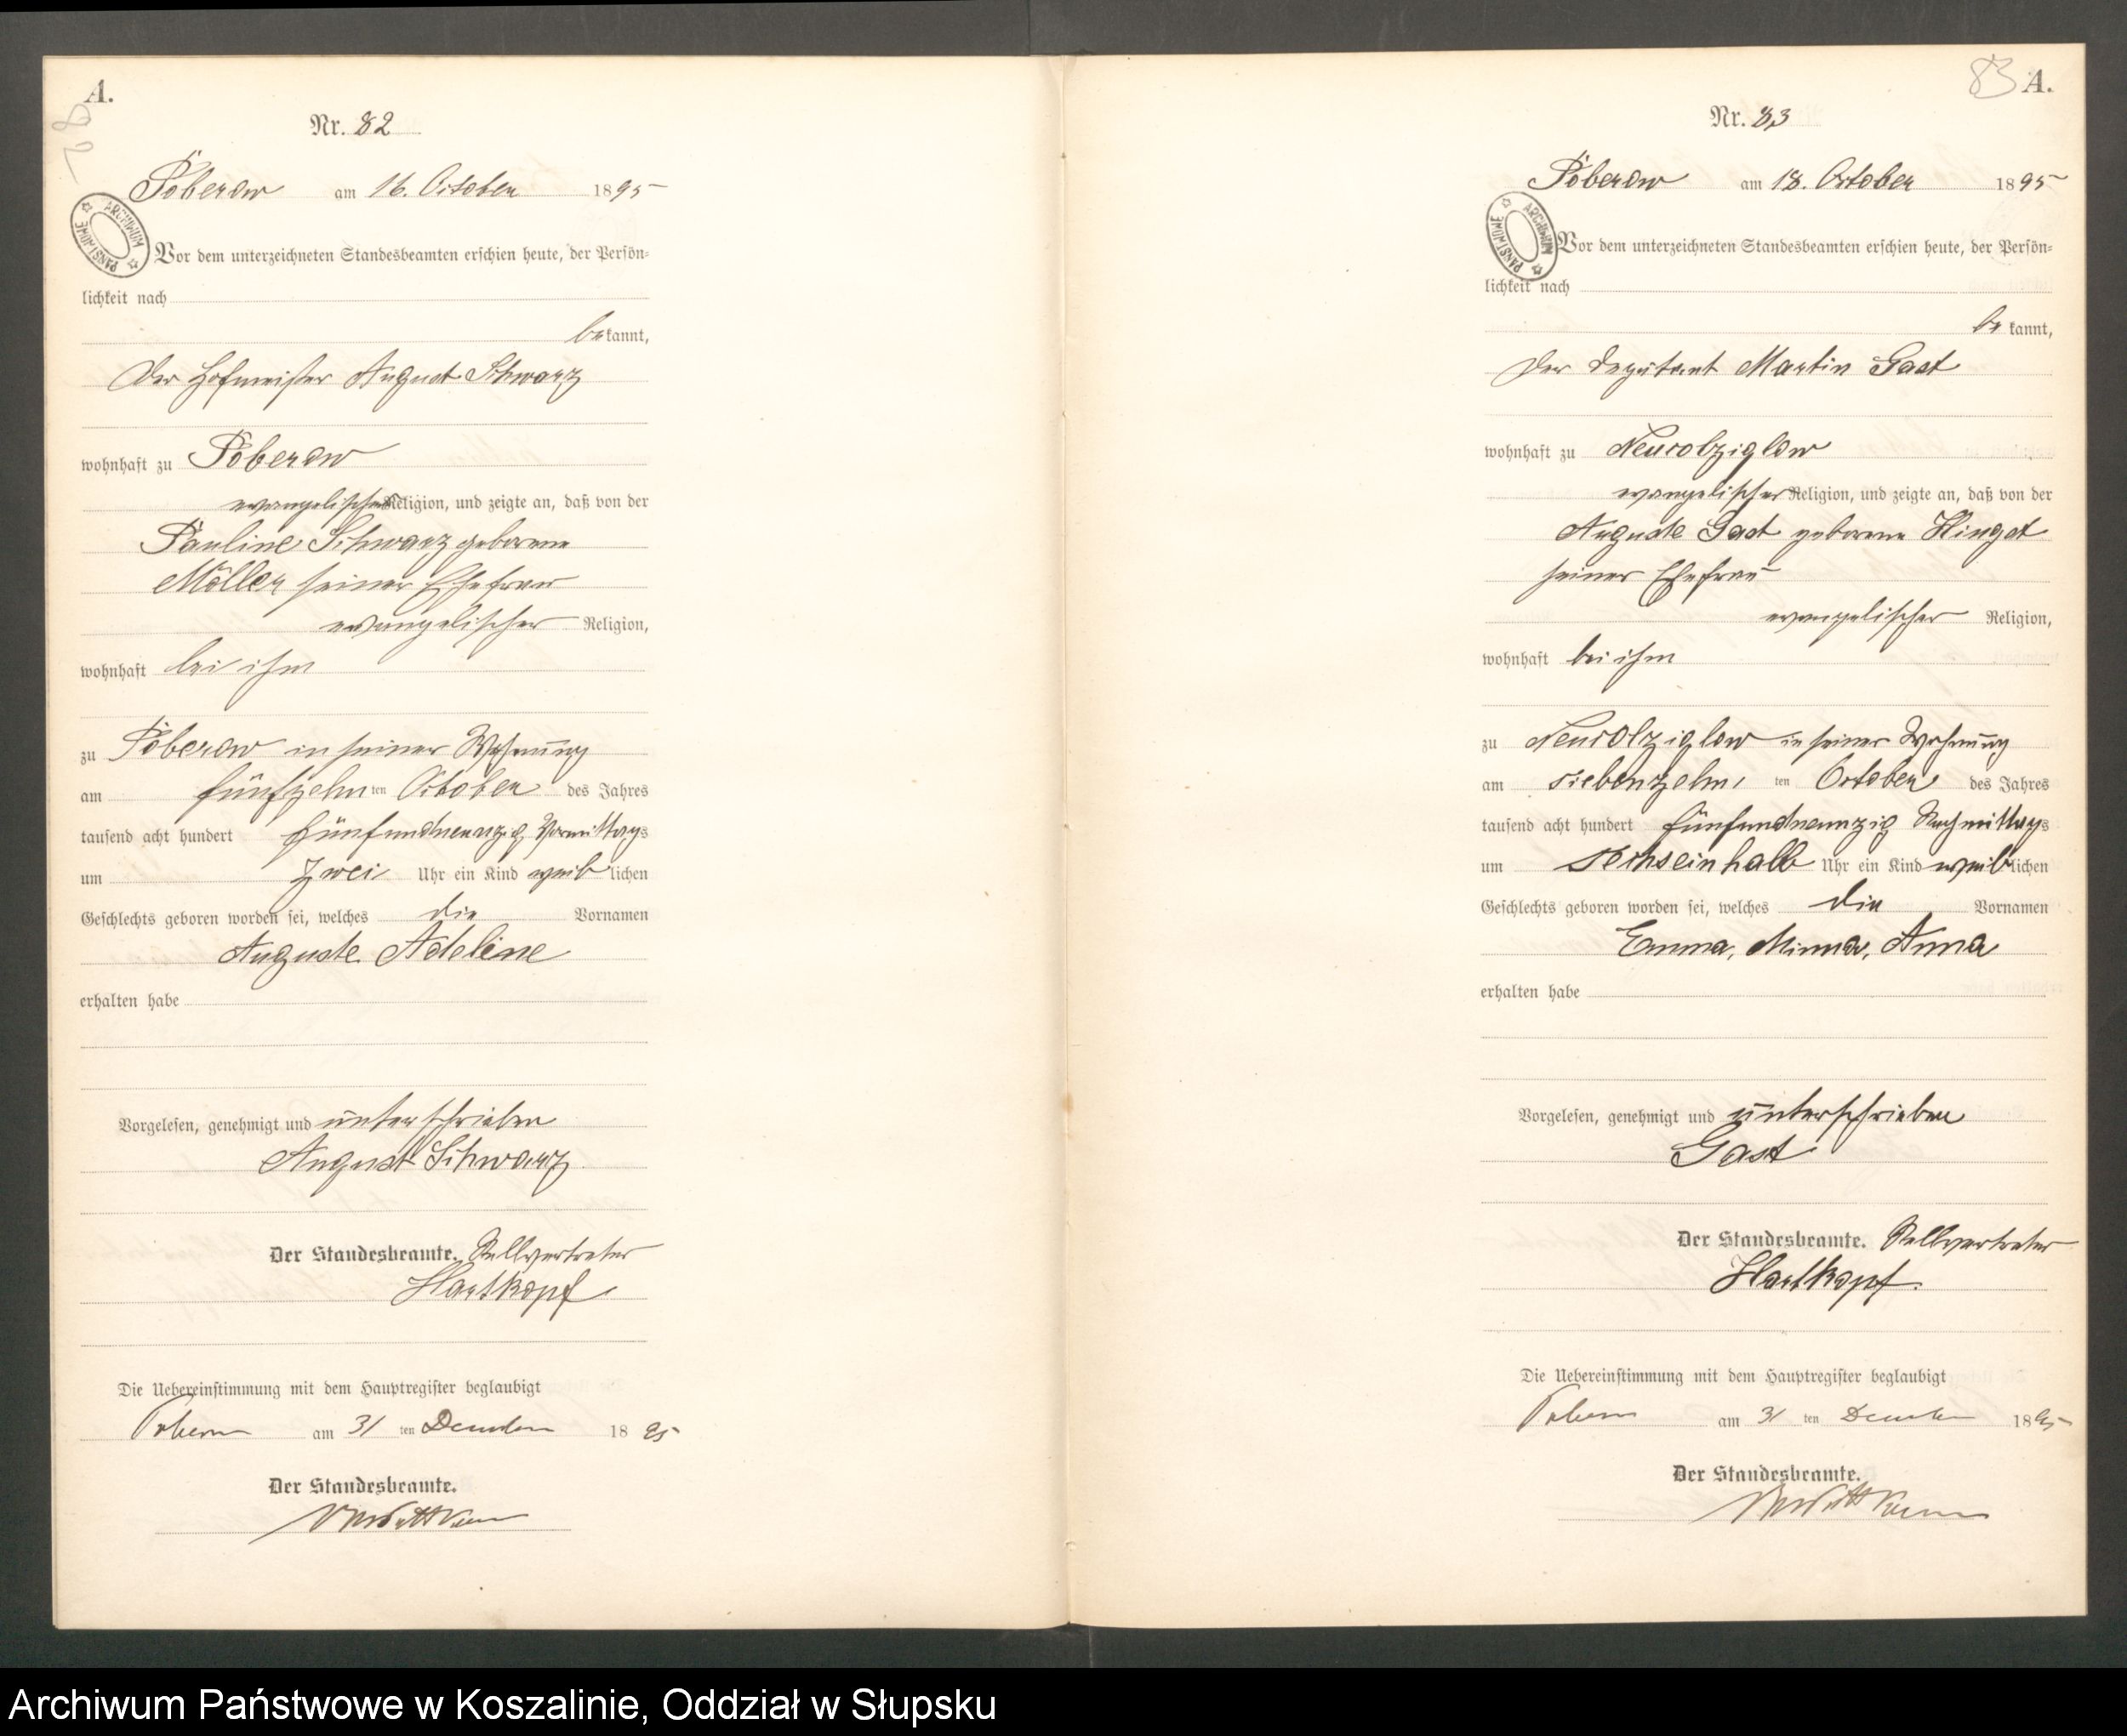 A.
82
Nr. 82
Poberow am 16. October 1895
ARCHIWUM PAŃSTWOWE
Vor dem unterzeichneten Standesbeamten erschien heute, der Persön-
lichkeit nach
bekannt,
Der Hofmeister August Schwarz
wohnhaft zu Poberow
evangelischer Religion, und zeigte an, daß von der
Pauline Schwarz geborene
Möller seiner Ehefrau
evangelischer Religion,
wohnhaft bei ihm
zu Poberow in seiner Wohnung
am fünfzehnten October des Jahres
tausend acht hundert fünfundneunzig Vormittags
um zwei Uhr ein Kind weiblichen
Geschlechts geboren worden sei, welches die Vornamen
Auguste Adeline
erhalten habe
Vorgelesen, genehmigt und unterschrieben
August Schwarz
Der Standesbeamte. Stellvertreter
Hartkopf
Die Uebereinstimmung mit dem Hauptregister beglaubigt
Poberow am 31 ten December 1895
Der Standesbeamte.
83 A.
Nr. 83
Poberow am 18. October 1895
ARCHIWUM PAŃSTWOWE
Vor dem unterzeichneten Standesbeamten erschien heute, der Persön-
lichkeit nach
bekannt,
Der Deputant Martin Gast
wohnhaft zu Neukolziglow
evangelischer Religion, und zeigte an, daß von der
Auguste Gast geborene Hingst
seiner Ehefrau
evangelischer Religion,
wohnhaft bei ihm
zu Neukolziglow in seiner Wohnung
am siebenzehn ten October des Jahres
tausend acht hundert fünfundneunzig Nachmittags
um sechseinhalb Uhr ein Kind weiblichen
Geschlechts geboren worden sei, welches die Vornamen
Emma, Minna, Anna
erhalten habe
Vorgelesen, genehmigt und unterschrieben
Gast
Der Standesbeamte. Stellvertreter
Hartkopf.
Die Uebereinstimmung mit dem Hauptregister beglaubigt
Poberow am 31 ten December 1895
Der Standesbeamte.
Archiwum Państwowe w Koszalinie, Oddział w Słupsku